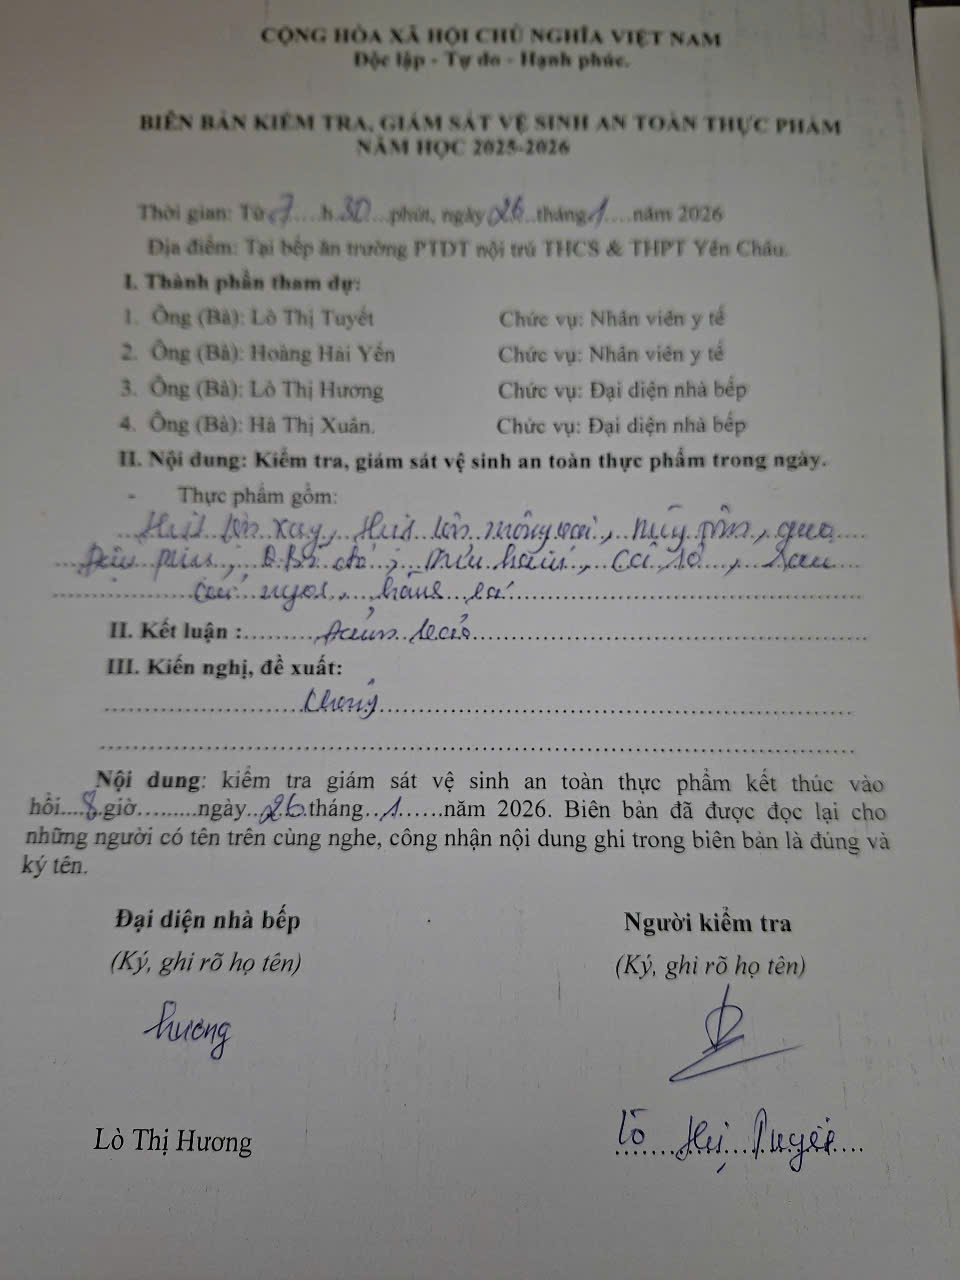 CỘNG HÒA XÃ HỘI CHỦ NGHĨA VIỆT NAM
Độc lập - Tự do - Hạnh phúc.
BIÊN BẢN KIỂM TRA, GIÁM SÁT VỆ SINH AN TOÀN THỰC PHẨM
NĂM HỌC 2025-2026
Thời gian: Từ 7.....h 30...phút, ngày 26..tháng 1....năm 2026
Địa điểm: Tại bếp ăn trường PTDT nội trú THCS & THPT Yên Châu.
I. Thành phần tham dự:
1. Ông (Bà): Lò Thị Tuyết Chức vụ: Nhân viên y tế
2. Ông (Bà): Hoàng Hải Yến Chức vụ: Nhân viên y tế
3. Ông (Bà): Lò Thị Hương Chức vụ: Đại diện nhà bếp
4. Ông (Bà): Hà Thị Xuân. Chức vụ: Đại diện nhà bếp
II. Nội dung: Kiểm tra, giám sát vệ sinh an toàn thực phẩm trong ngày.
- Thực phẩm gồm:
Thịt lợn xay, Thịt lợn mông vai,
Đậu
cải ngọt, hành lá
II. Kết luận :............Đảm bảo
III. Kiến nghị, đề xuất:
Không
Nội dung: kiểm tra giám sát vệ sinh an toàn thực phẩm kết thúc vào
hồi....8.giờ..........ngày..26.tháng..1......năm 2026. Biên bản đã được đọc lại cho
những người có tên trên cùng nghe, công nhận nội dung ghi trong biên bản là đúng và
ký tên.
Đại diện nhà bếp Người kiểm tra
(Ký, ghi rõ họ tên) (Ký, ghi rõ họ tên)
Hương
Lò Thị Hương Lò Thị Tuyết